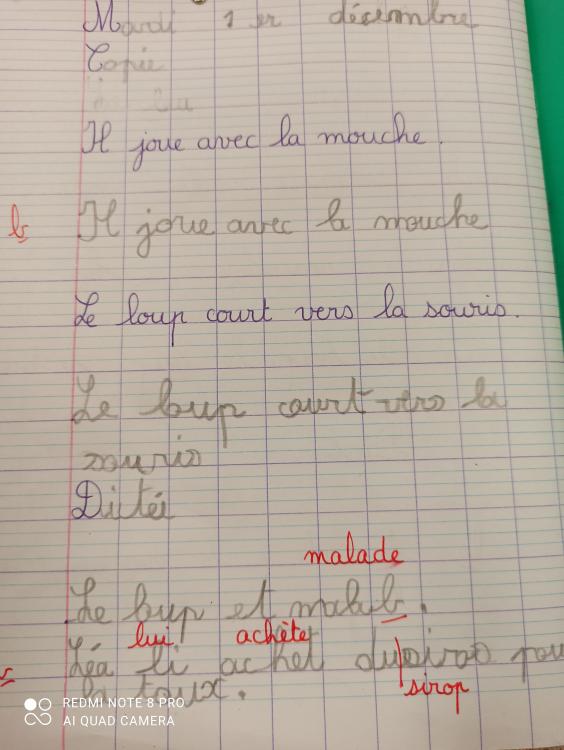 Mardi 1 er décembre
Copie
Il joue avec la mouche.
b Il joue avec la mouche
Le loup court vers la souris.
Le loup court vers la
souris
Dictéi
malade
Le loup et malab.
lui achète
Léa li achet du sirao pou
la toux.
sirop
REDMI NOTE 8 PRO
AI QUAD CAMERA